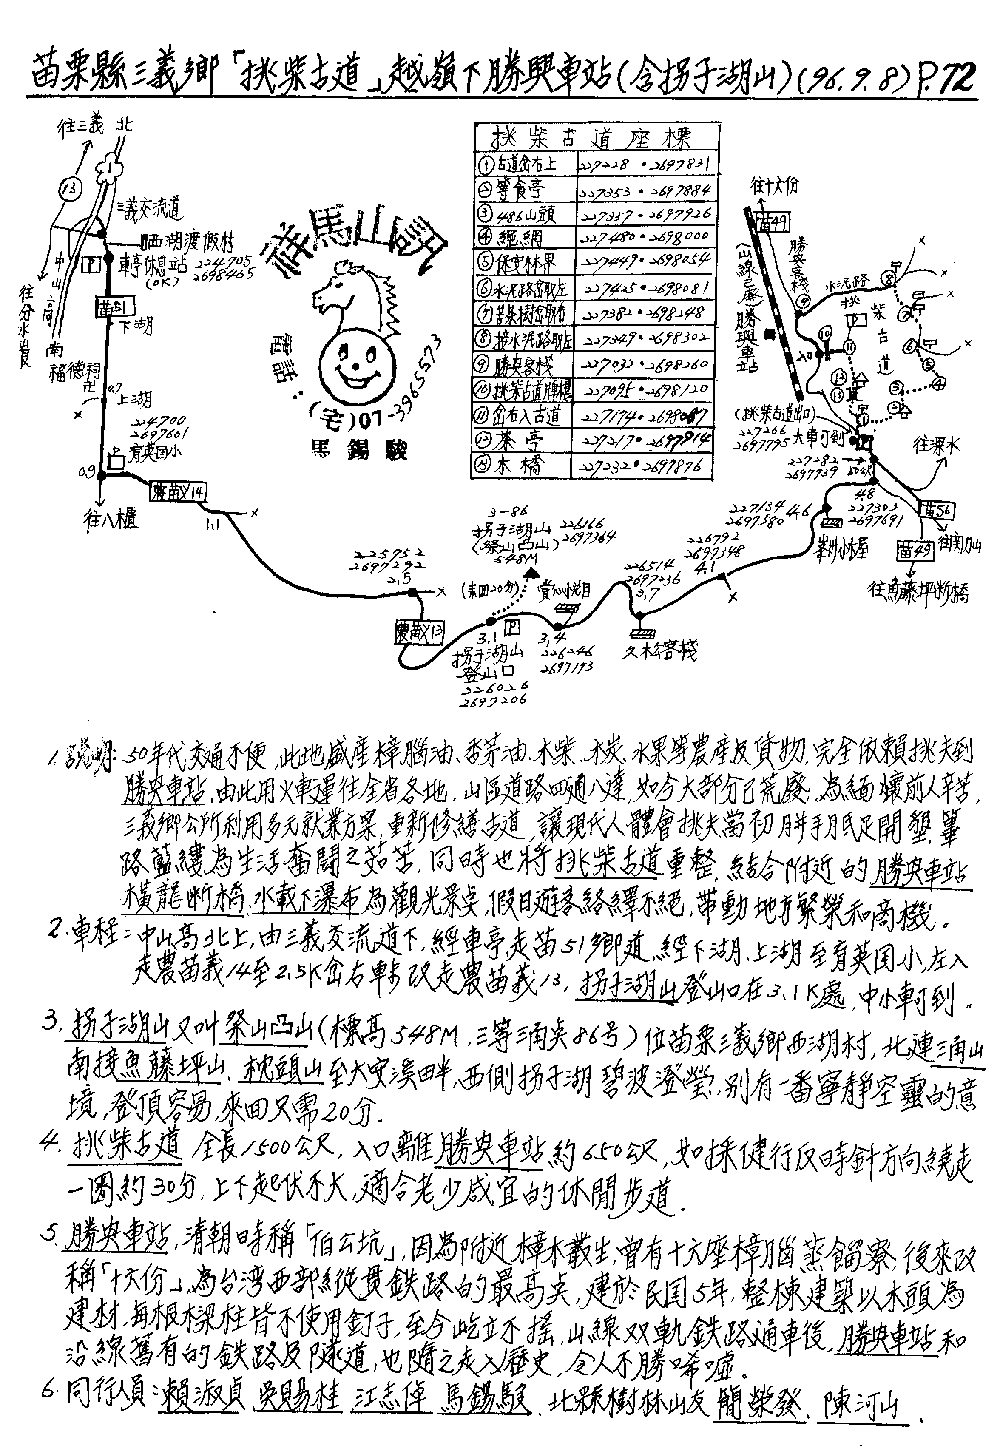 苗栗縣三義鄉「挑柴古道」越嶺下勝興車站(含拐子湖山)(96.9.8) P.72
往三義 北
13
三義交流道
西湖渡假村
車亭休息站 224705
(OK) 2698465
P
苗51
下湖
中山高
南
往分水崙
福德祠
0.7
上湖
224700
2697601
育英国小
0.9
往八櫃
農苗义14
1.1
祥馬山訊
電話:(宅)07-3965573
馬錫駿
挑柴古道座標
①古道岔右上 227228・2697831
②等食亭 227353・2697884
③486山頭 227337・2697926
④經網 227480・2698000
⑤保安林界 227449・2698054
⑥水泥路岔取左 227425・2698081
⑦苦茶樹岔取右 227382・2698248
⑧接水泥路取左 227349・2698302
⑨勝興客栈 227032・2698260
⑩挑柴古道牌樓 227095・2698120
⑪岔右入古道 227174・2698087
⑫茶亭 227217・2697914
⑬木橋 227232・2697876
往十六份
苗49
(山線已廢)勝興車站
勝興客栈
水泥路
挑柴古道
(挑柴古道出口)
227266
2697795
大車可到
227282
2697739
往深水
苗56
苗49
往魚藤坪断橋
4.8
227303
2697691
227134
2697580
4.6
226792
2697348
4.1
226514
2697236
3.7
久松客栈
3-86
拐子湖山 226166
(祭山凸山) 2697364
548M
(來回20分)
3.1
P
拐子湖山
登山口
226026
2697206
3.4
226246
2697193
225752
2697292
2.5
農苗义13
1.說明: 50年代交通不便,此地盛産樟腦油、香茅油、木柴、木炭、水果等農產及貨物,完全依賴挑夫到
勝興車站,由此用火車運往全省各地,山區道路四通八達,如今大部分已荒廢,為緬懷前人辛苦,
三義鄉公所利用多元就業方案,重新修繕古道,讓現代人體會挑夫當初胼手胝足開墾,篳
路藍縷為生活奮鬪之茹苦,同時也將挑柴古道重整,結合附近的勝興車站
橫龍断橋,水載下瀑布為觀光景点,假日遊客絡繹不絕,帶動地方繁榮和商機。
2.車程:中山高北上,由三義交流道下,經車亭走苗51鄉道,經下湖、上湖至育英国小,左入
走農苗義14至2.5K岔右轉改走農苗義13,拐子湖山登山口在3.1K處,中小車可到。
3.拐子湖山又叫祭山凸山(標高548M,三等三角点86号)位苗栗三義鄉西湖村,北連三角山
南接魚藤坪山、枕頭山至大安溪畔,西側拐子湖碧波澄瑩,別有一番寧靜空靈的意
境,登頂容易,來回只需20分.
4.挑柴古道 全長1500公尺,入口離勝興車站約650公尺,如採健行反時針方向繞走
一圈約30分,上下起伏不大,適合老少咸宜的休閒步道.
5.勝興車站,清朝時稱「伯公坑」,因為附近樟木叢生,曾有十六座樟腦蒸餾寮,後來改
稱「十六份」,為台湾西部縱貫鉄路的最高点,建於民国5年,整棟建築以木頭為
建材,每根樑柱皆不使用釘子,至今屹立不搖,山線双軌鉄路通車後,勝興車站和
沿線舊有的鉄路及隧道,也隨之走入歷史,令人不勝唏噓.
6.同行人員:賴淑貞 吳賜桂 江志偉 馬錫駿、北縣樹林山友簡榮發、陳河山.